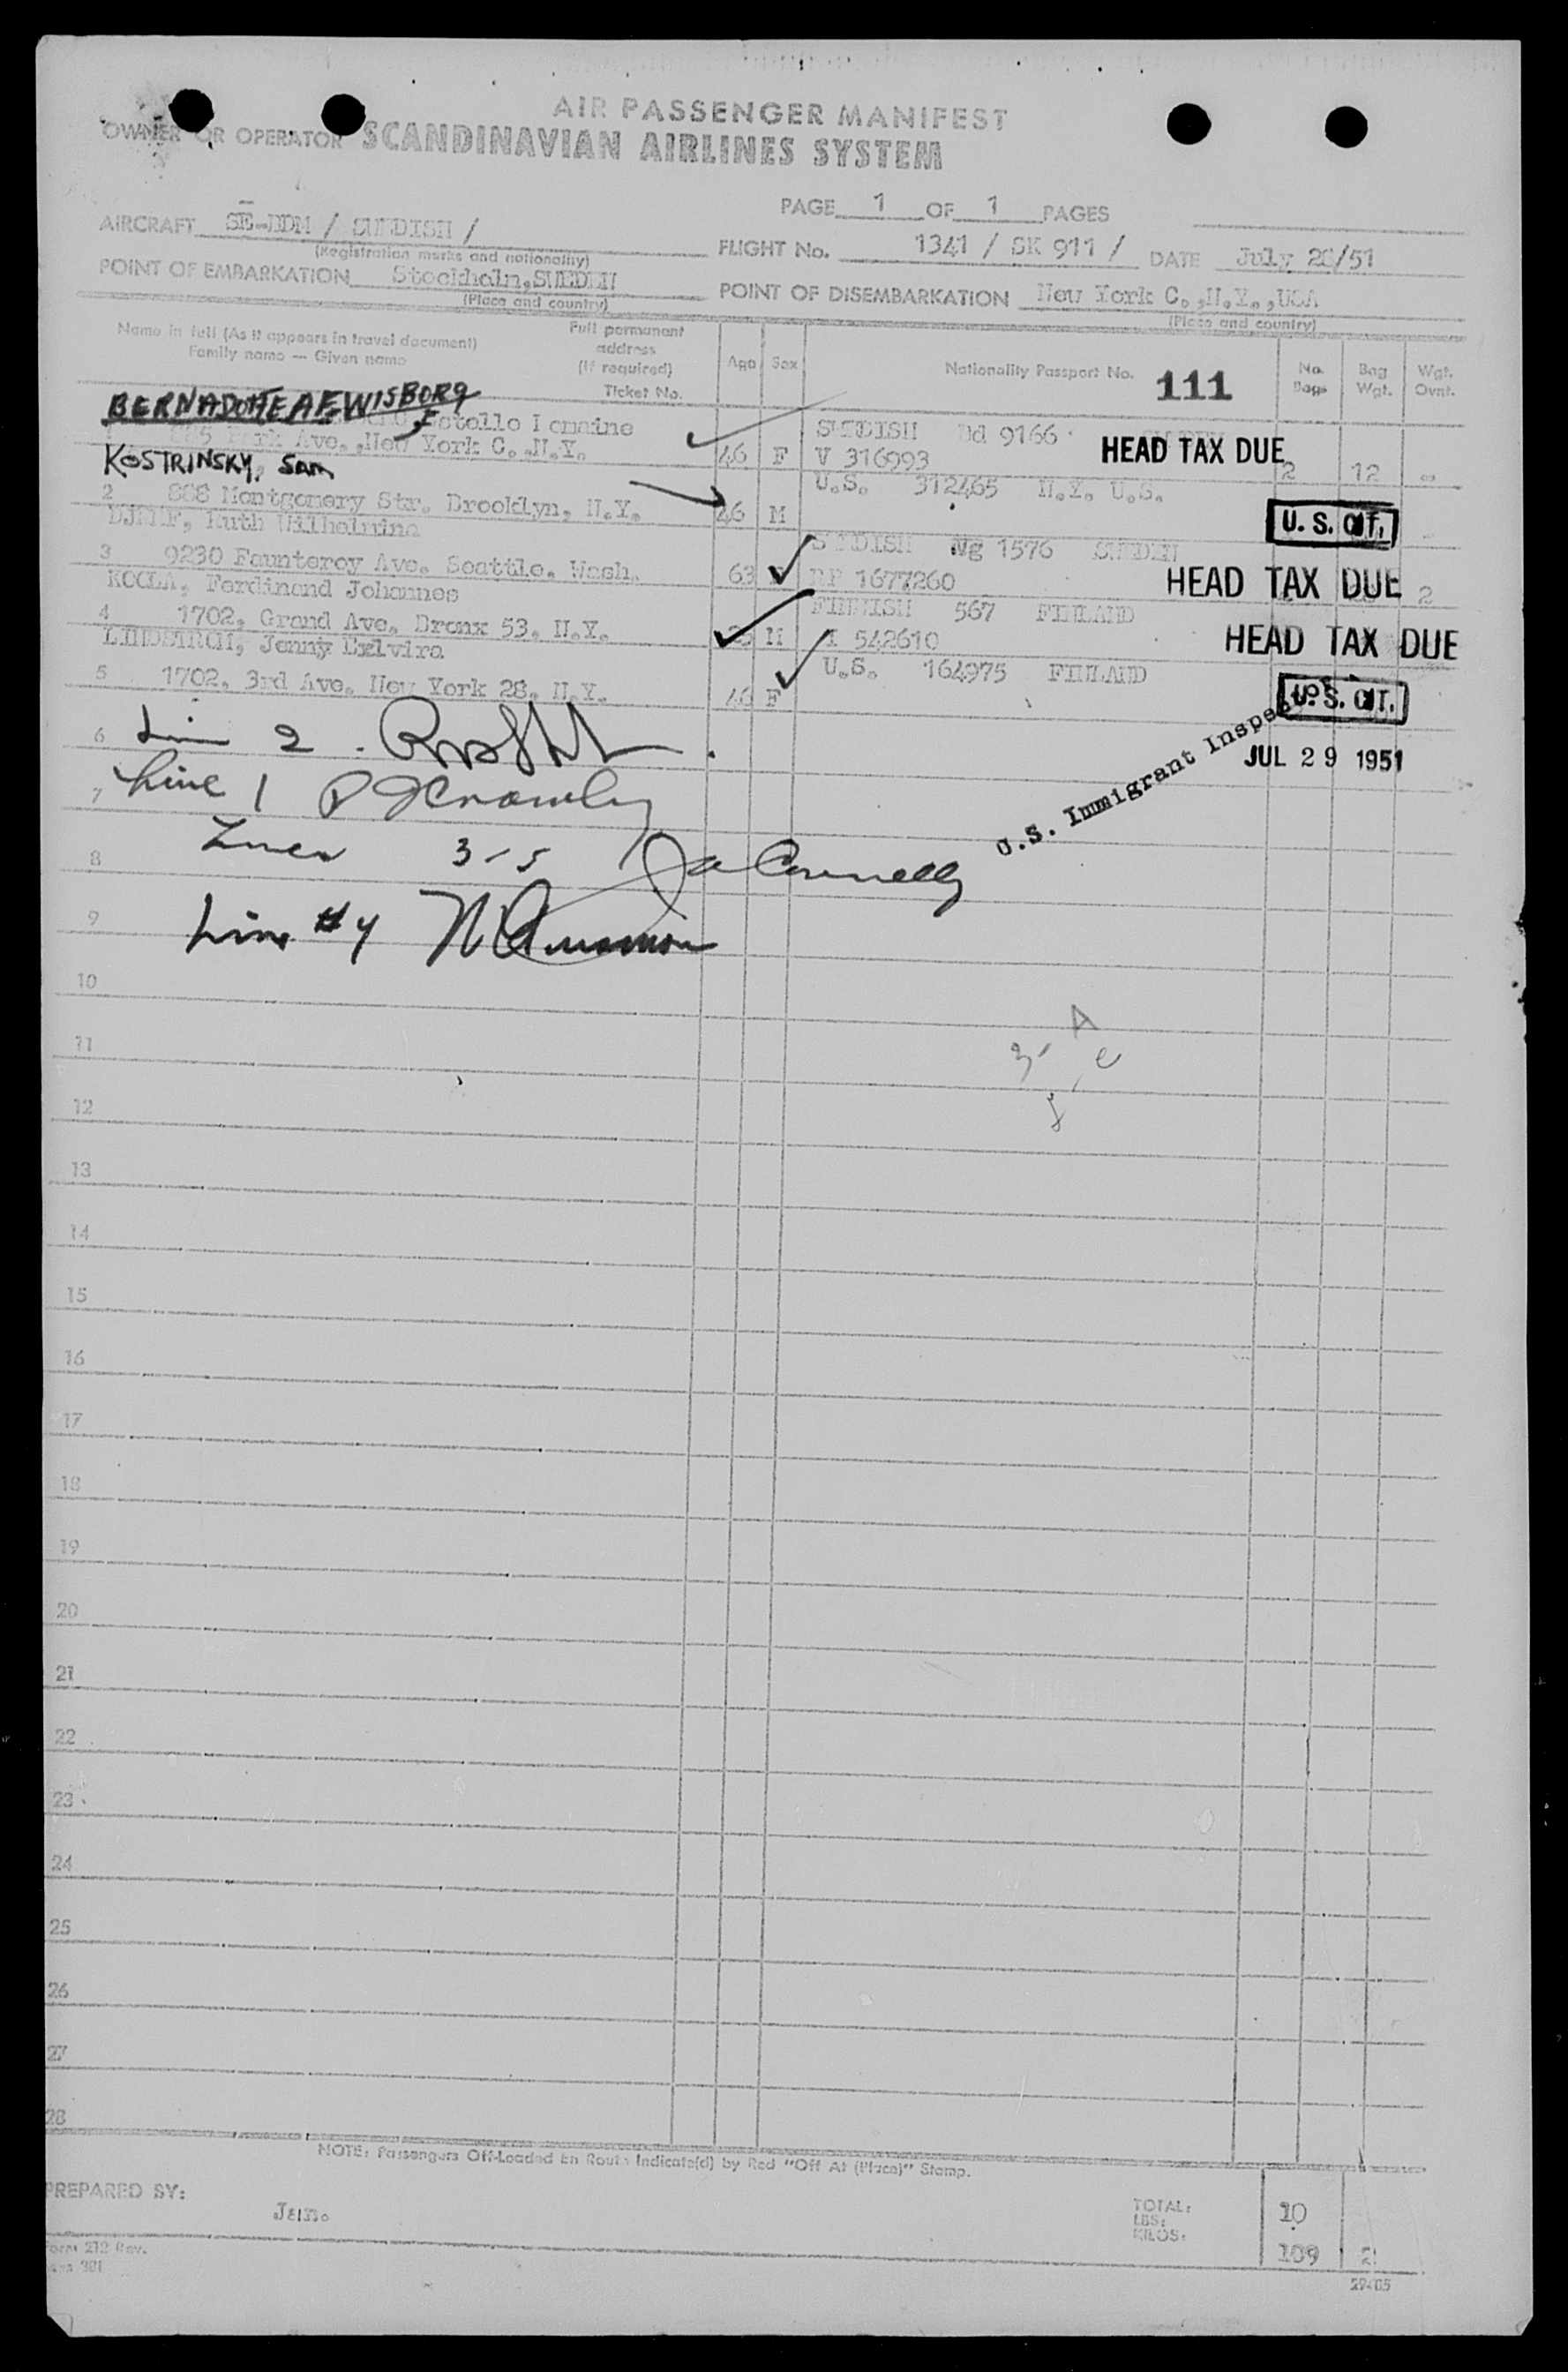 AIR PASSENGER MANIFEST
OWNER OR OPERATOR SCANDINAVIAN AIRLINES SYSTEM
PAGE 1 OF 1 PAGES
AIRCRAFT SE-BDM / SWEDISH /
(Registration marks and nationality)
FLIGHT No. 1341 / SK 911 / DATE July 28/51
POINT OF EMBARKATION Stockholm, SWEDEN
(Place and country)
POINT OF DISEMBARKATION New York C., N.Y., USA
(Place and country)
Name in full (As it appears in travel document)
Family name — Given name
Full permanent
address
(If required)
Ticket No.
Age Sex
Nationality Passport No. 111
No.
Bags
Bag
Wgt.
Wgt.
Ovnt.
BERNADOTTE AF WISBORG
, Estelle Romaine SWEDISH 9166
Park Ave., New York C., N.Y. 46 F V 316993 HEAD TAX DUE 2 12 -
KOSTRINSKY, Sam U.S. 312465 N.Y. U.S.
2 888 Montgomery Str. Brooklyn, N.Y. 46 M U.S. CIT.
Ruth Wilhelmina SWEDISH Ng 1576 SWEDEN
3 9230 Fauntleroy Ave. Seattle. Wash. 63 1677260 HEAD TAX DUE 2
Ferdinand Johannes FINNISH 567 FINLAND
4 1702, Grand Ave. Bronx 53. N.Y. M 542610 HEAD TAX DUE
Jenny U.S. 164975 FINLAND
5 1702, 3rd Ave. New York 28. N.Y. 46 F U.S. CIT.
6 Line 2
U.S. Immigrant Inspector
JUL 29 1951
7 Line 1 P J Crowley
8 Lines 3-5 Connelly
9 Line #4
10
11
12
13
14
15
16
17
18
19
20
21
22
23
24
25
26
27
28
NOTE: Passengers Off-Loaded En Route Indicate(d) by Red "Off At (Place)" Stamp.
PREPARED BY:
TOTAL: 10
LBS:
KILOS: 109 2
Form 212 Rev.